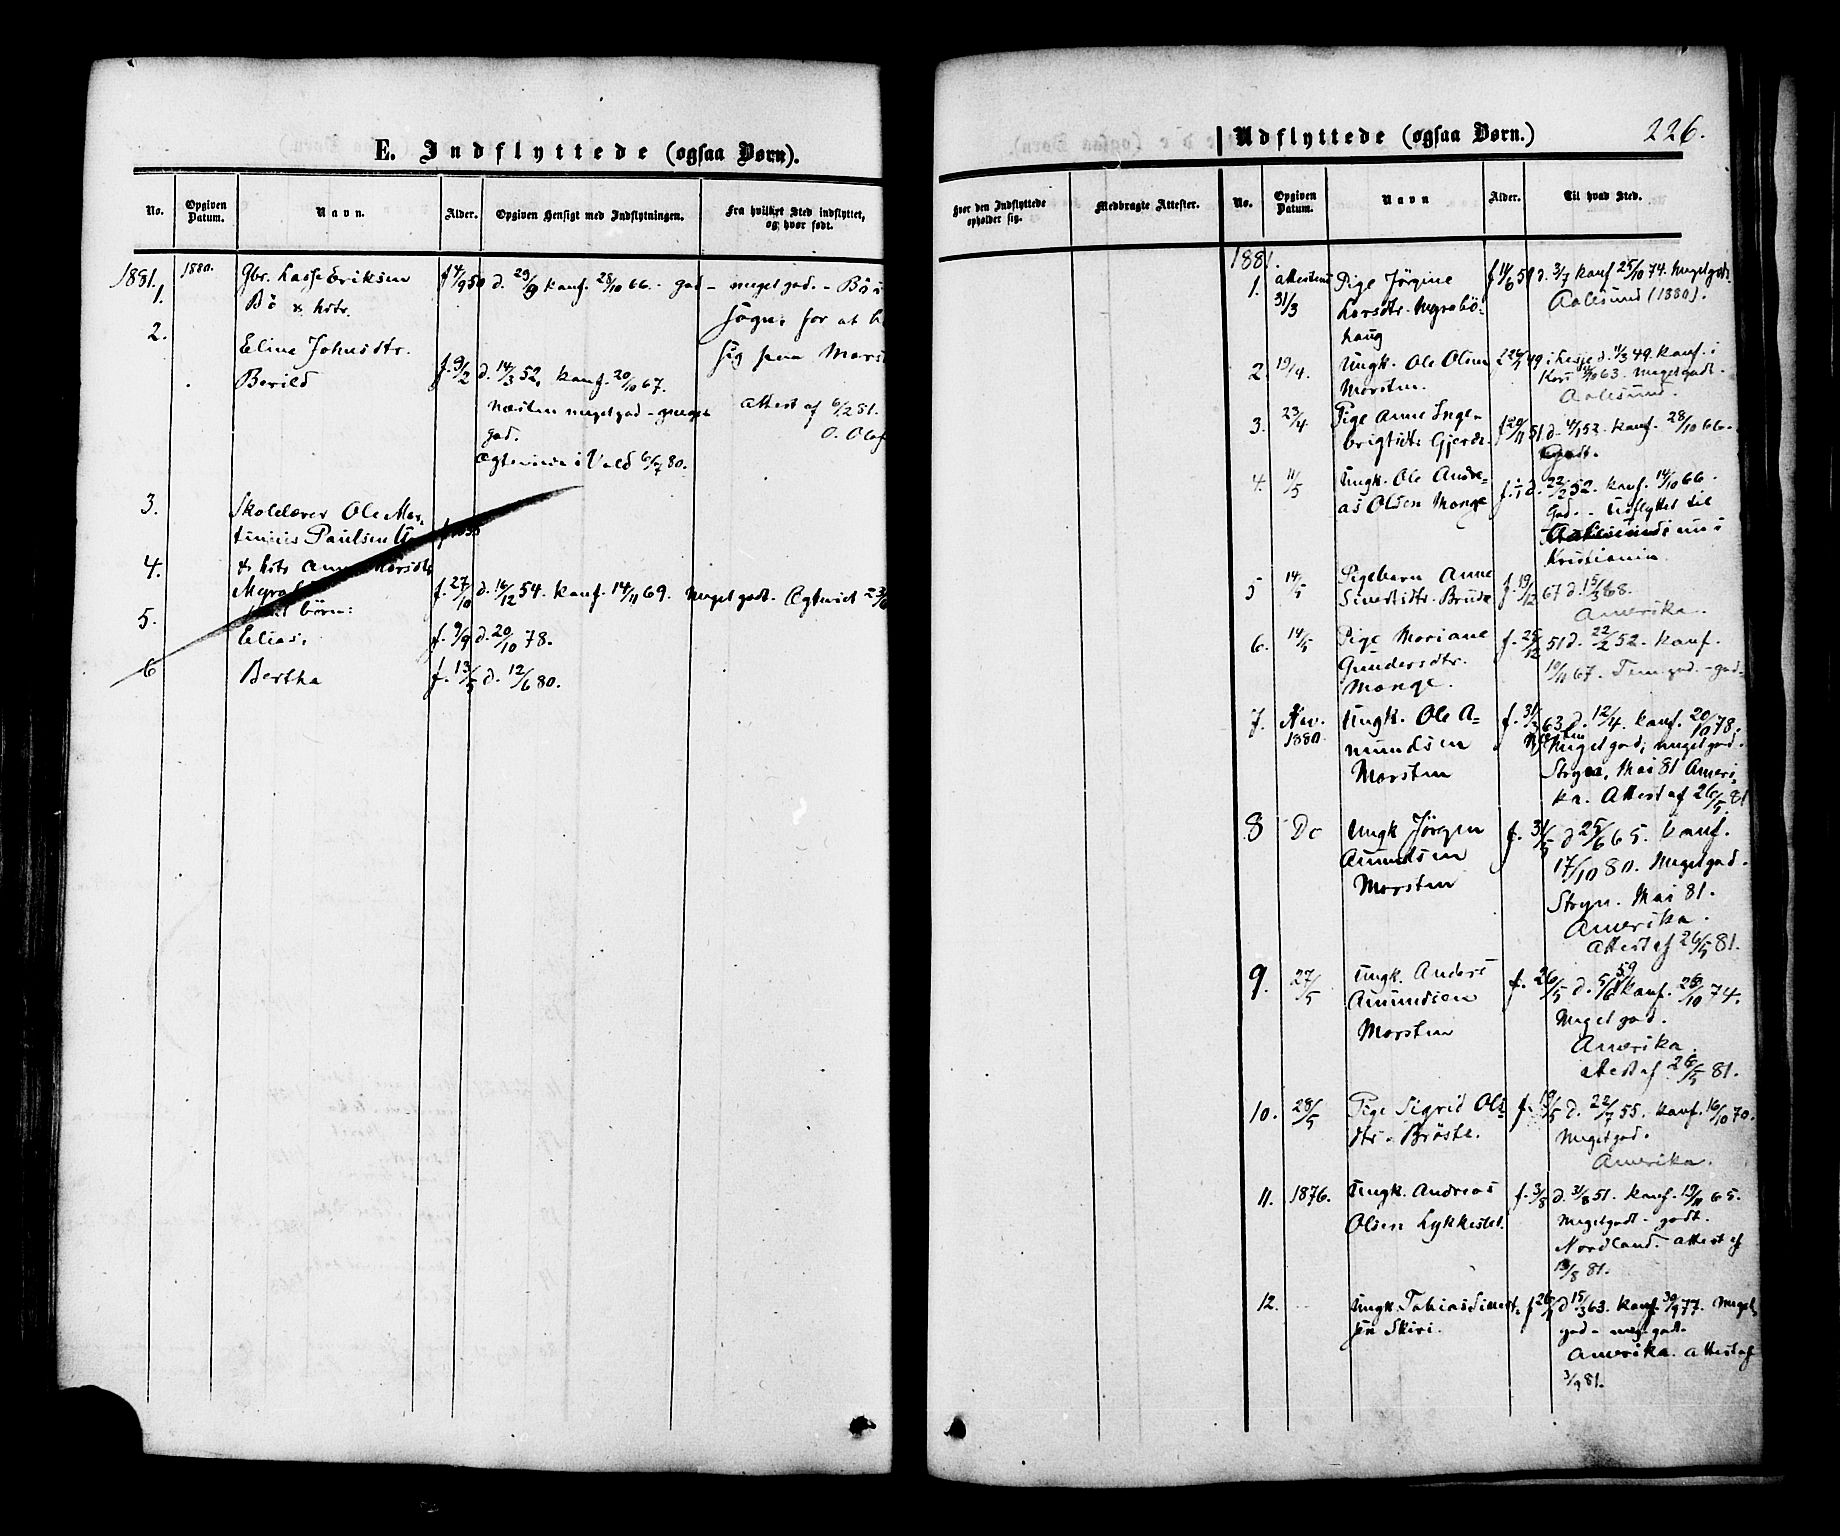 E. Indflyttede (ogsaa Børn).
No.
Opgiven Datum.
Navn.
Alder.
Opgiven Hensigt med Indflytningen.
Fra hvilket Sted indflyttet, og hvor født.
1881.
1.
1880.
Gbr. Lasse Eriksen
Bö & hstr.
f 4/9 50
d. 29/9 kanf. 28/10 66. - god -
meget god. - Bö i
sogn, for at
sig paa Marst
2.
Eline Johnsdtr.
Berild
f. 9/2
d. 14/3 52, kanf. 20/10 67.
Næsten meget god -
god.
Ægteviet i Vold 6/7 80.
Attest af 6/2 81.
O. Olaf
3.
Skolelærer Ole Mar-
tinius Paulsen
4.
& hstr. Anne Larsdtr
Myra
f. 27/10
d. 16/12 54. kanf. 14/11 69. Meget godt. Ægteviet 23/6
børn:
5.
Elias,
f. 9/9
d. 20/10 78.
6
Bertha
f. 13/5
d. 12/6 80.
Udflyttede (ogsaa Børn.)
226.
Hvor den Indflyttede opholder sig.
Medbragte Attester.
No.
Opgiven Datum.
Navn
Alder.
Til hvad Sted.
1881.
1.
attesteret
31/3
Pige Jörgine
Larsdtr. Myrabö-
haug
f 11/6 59
d. 3/7 kanf 25/10 74. Meget godt.
Aalesund (1880).
2.
19/4.
Ungk. Ole Olsen
Marsten.
i Lesje d. 11/3 49. kanf. i
Kors 63. Meget godt.
Aalesund.
3.
23/4
Pige Anne Inge-
brigtsdtr. Gjerde.
f 29/11 51
d. 4/1 52. kanf. 28/10 66.
4.
11/5
Ungk. Ole Andre-
as Olsen Monge
f. 1/1
d. 22/2 52. kanf. 14/10 66.
God. - Udflyttet til
Kristiania
5
14/5
Pigebarn Anne
Sivertsdtr. Brude
f. 19/12
67 d. 15/3 68.
Amerika.
6.
14/5
Pige Mariane
Gundersdtr.
Monge.
f. 25/12
51 d. 22/2 52. kanf.
10/11 67. Tem. god. - god.
7.
Nov.
1880.
Ungk. Ole A-
mundsen
Marsten
f. 31/3
63 d. 12/4. kanf. 20/10 78.
Næsten
Meget god; meget god.
Stryn, Mai 81 Ameri-
ka. Attest af 26/5 81
8
Do
Ungk Jörgen
Amundsen
Marsten
f. 31/5
d 25/6 65. kanf.
17/10 80. Meget god.
Stryn. Mai 81.
Amerika.
Attest af 26/5 81.
9.
27/5
Ungk. Anders
Amundsen
Marsten
f. 26/5
d. 5/6 59 kanf. 28/10 74.
Meget god.
Amerika.
Attest af 28/5 81.
10.
28/5
Pige Sigrid Ols-
dtr. Bröste.
f. 19/5
d. 22/7 55. kanf. 16/10 70.
Meget god.
Amerika.
11.
1876.
Ungk. Andreas
Olsen Lykkeslet.
f. 3/8
d. 31/8 51. kanf. 19/11 65.
Meget godt - godt.
Nordland. - Attest af
19/8 81.
12.
Ungk. Tobias Sivert-
sen Skiri.
f 26/1
d 15/3 63. kanf. 30/9 77. Meget
god - meg. godt.
Amerika. Attest af
3/9 81.